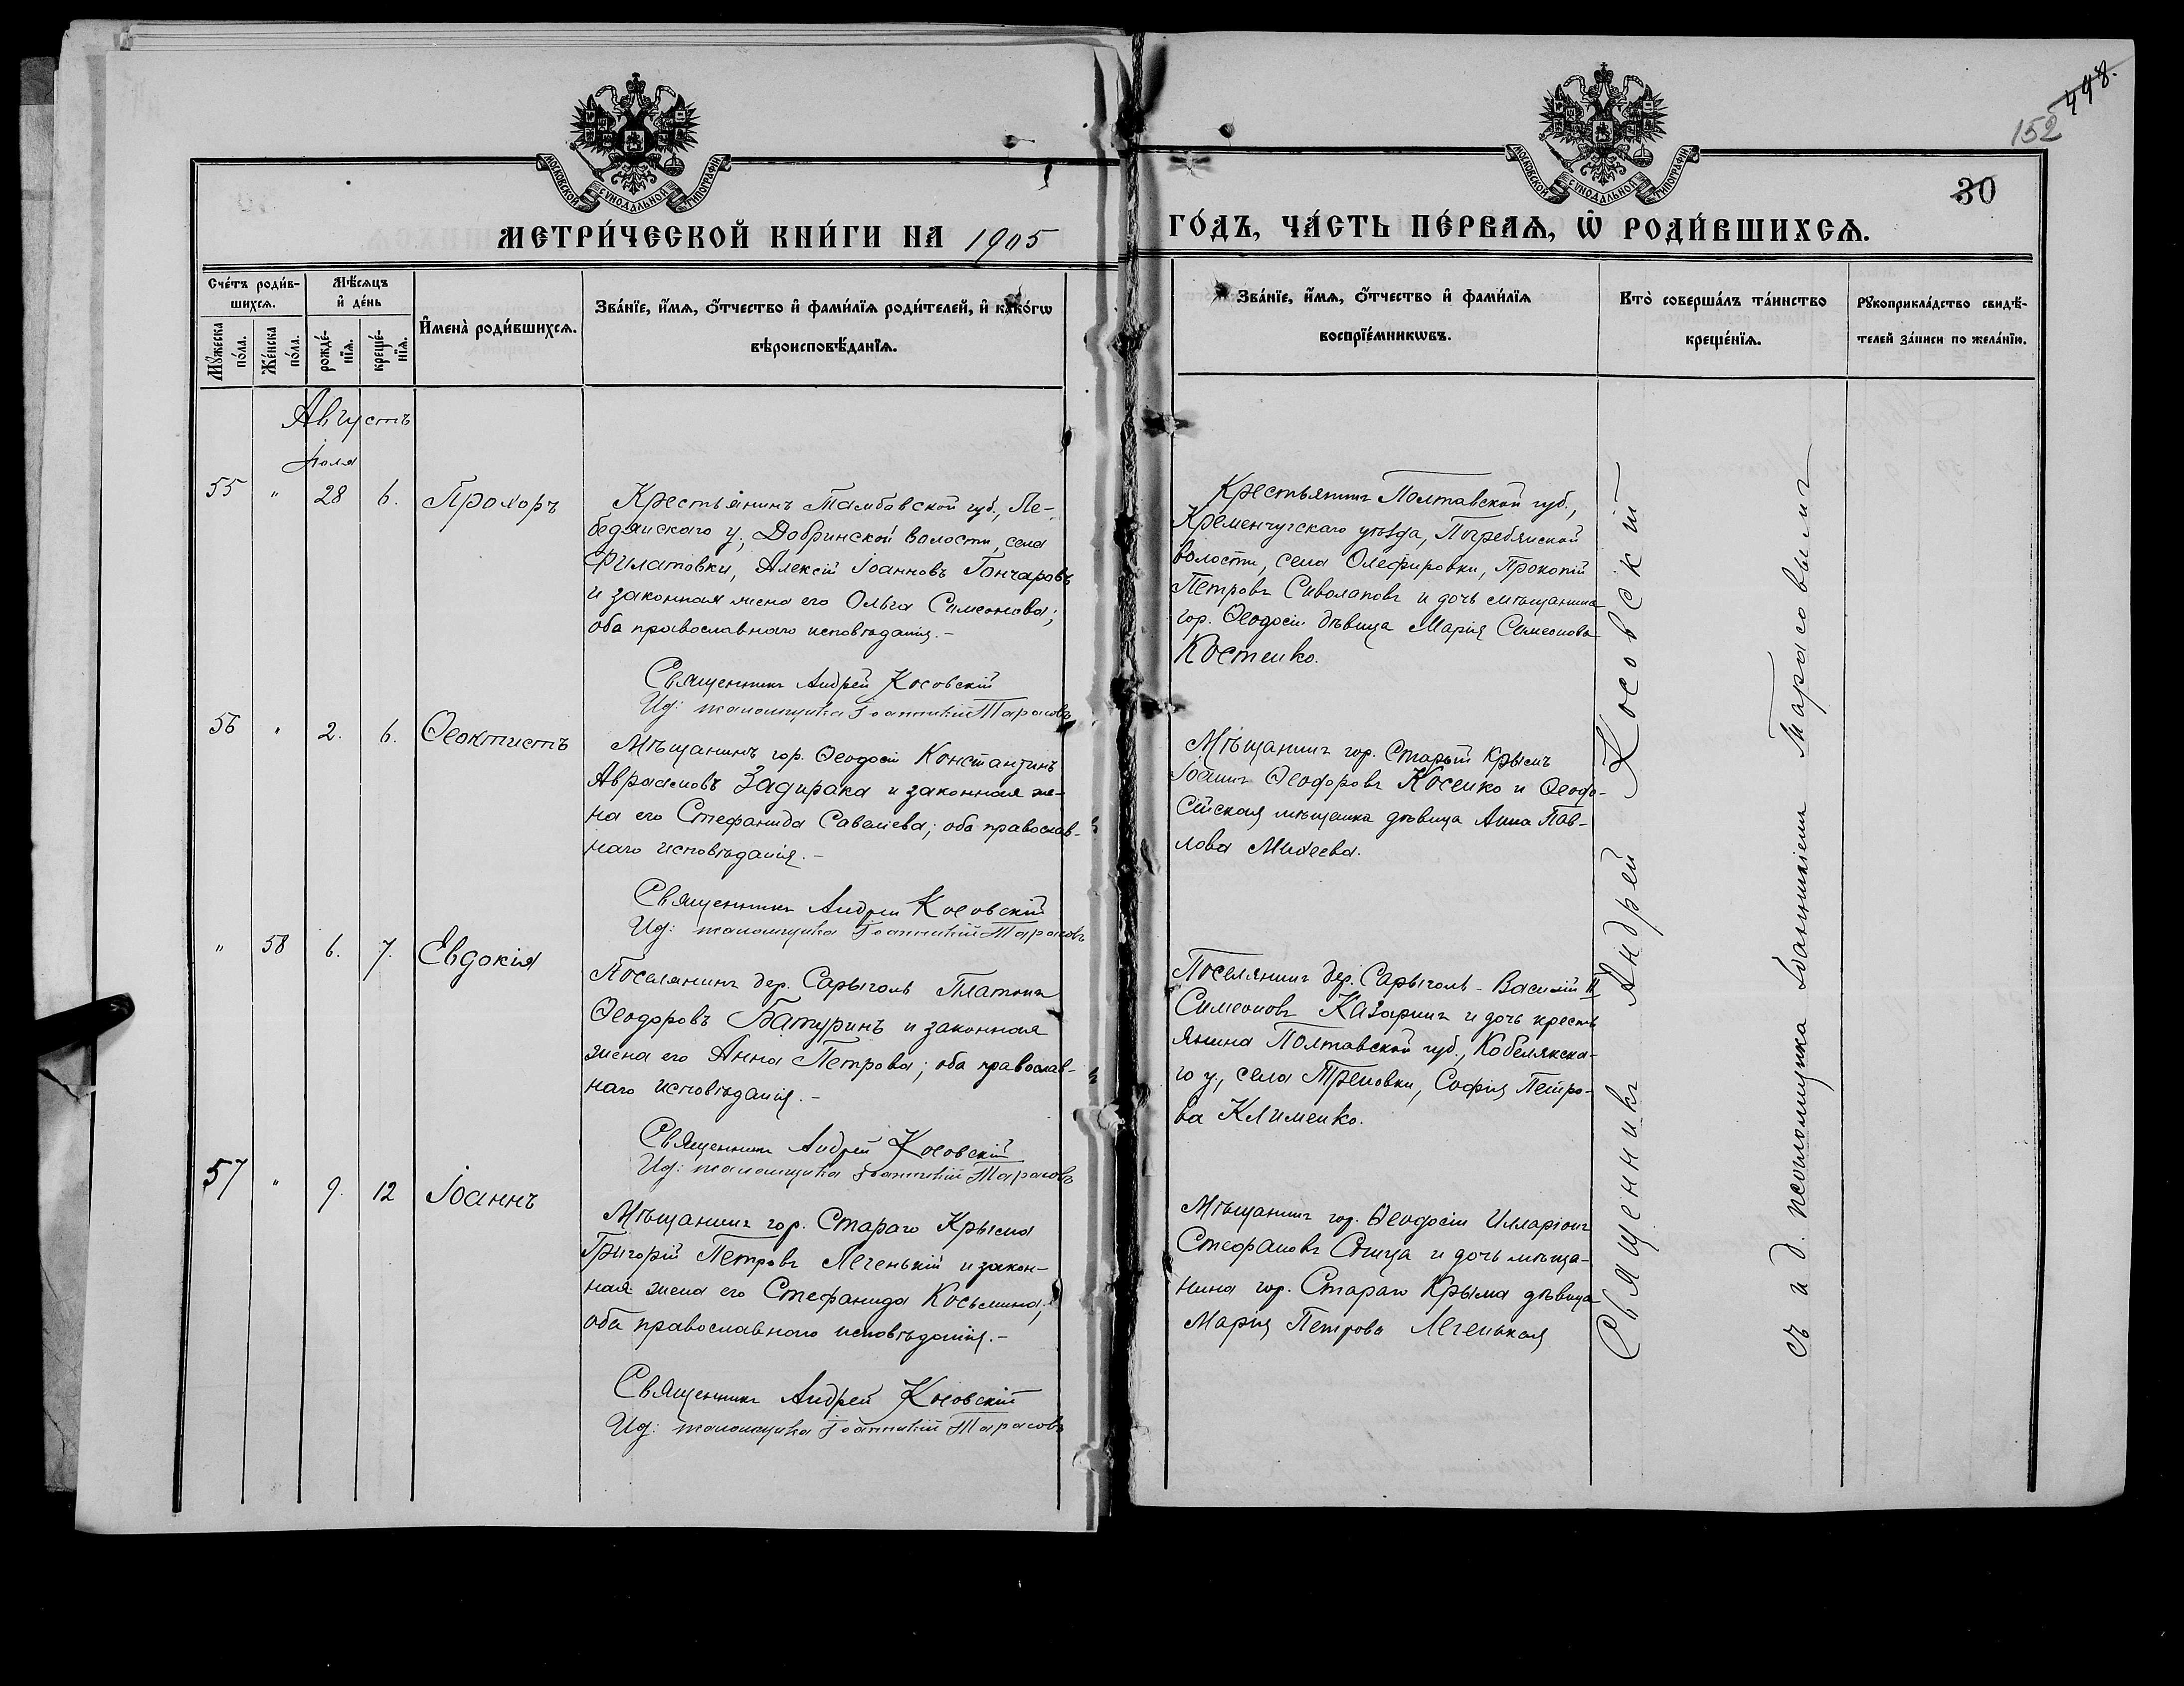 448.
152
30
МОСКОВСКОЙ СѴНОДАЛЬНОЙ ТИПОГРАФІИ
МОСКОВСКОЙ СѴНОДАЛЬНОЙ ТИПОГРАФІИ
МЕТРИ́ЧЕСКОЙ КНИ́ГИ НА 1905
ГО́ДЪ, ЧА́СТЬ ПЕ́РВАѦ, Ѿ РОДИ́ВШИХСѦ.
Сче́тъ роди́в-
шихсѧ.
Мѣ́сѧцъ
и де́нь
Мꙋ́жеска по́ла.
Же́нска по́ла.
рожде́-
нїѧ.
креще́-
нїѧ.
И҆мена̀ роди́вшихсѧ.
Зва́нїе, и҆́мѧ, ѻ҆́тчество и҆ фами́лїѧ роди́телей, и҆ како́гѡ
вѣроисповѣ́данїѧ.
Зва́нїе, и҆́мѧ, ѻ҆́тчество и҆ фами́лїѧ
воспрїе́мникѡвъ.
Кто̀ соверша́лъ та́инство
креще́нїѧ.
Рꙋкоприкла́дство свидѣ́-
телей за́писи по жела́нїю.
Августъ
Іюля
55 " 28 6. Прохоръ
Крестьянинъ Тамбовской губ., Ле-
бедянскаго у., Добринской волости, села
Филатовки, Алексій Іоанновъ Гончаровъ
и законная жена его Ольга Симеонова;
оба православнаго исповѣданія.-
Священникъ Андрей Косовскій
Ид: псаломщика Іоанникій Тарасовъ
Крестьянинъ Полтавской губ.,
Кременчугскаго уѣзда, Погребянской
волости, села Олефировки, Прокопій
Петровъ Сиволаповъ и дочь мѣщанина
гор. Ѳеодосіи дѣвица Марія Симеонова
Костенко.
56 " 2. 6. Ѳеоктистъ
Мѣщанинъ гор. Ѳеодосіи Константинъ
Авраамовъ Задирака и законная же-
на его Стефанида Савеліева; оба православ-
наго исповѣданія.-
Священникъ Андрей Косовскій
Ид: псаломщика Іоанникій Тарасовъ
Мѣщанинъ гор. Старый Крымъ
Іоаннъ Ѳеодоровъ Косенко и Ѳеодо-
сійская мѣщанка дѣвица Анна Пав-
лова Михеева.
" 58 6. 7. Евдокія
Поселянинъ дер. Сарыголь Платонъ
Ѳеодоровъ Батуринъ и законная
жена его Анна Петрова; оба православ-
наго исповѣданія.-
Священникъ Андрей Косовскій
Ид: псаломщика Іоанникій Тарасовъ
Поселянинъ дер. Сарыголь - Василій II
Симеоновъ Казаринъ и дочь кресть
янина Полтавской губ., Кобелякска-
го у., села София Петро-
ва Клименко.
57 " 9. 12 Іоаннъ
Мѣщанинъ гор. Стараго Крыма
Григорій Петровъ Легенькій и закон-
ная жена его Стефанида Косьмина;
оба православнаго исповѣданія.-
Священникъ Андрей Косовскій
Ид: псаломщика Іоанникій Тарасовъ
Мѣщанинъ гор. Ѳеодосіи Илларіонъ
Стефановъ и дочь мѣща-
нина гор. Стараго Крыма дѣвица
Марія Петрова Легенькая
Священникъ Андрей Косовскій
съ и д. псаломщика Іоанникіемъ Тарасовымъ